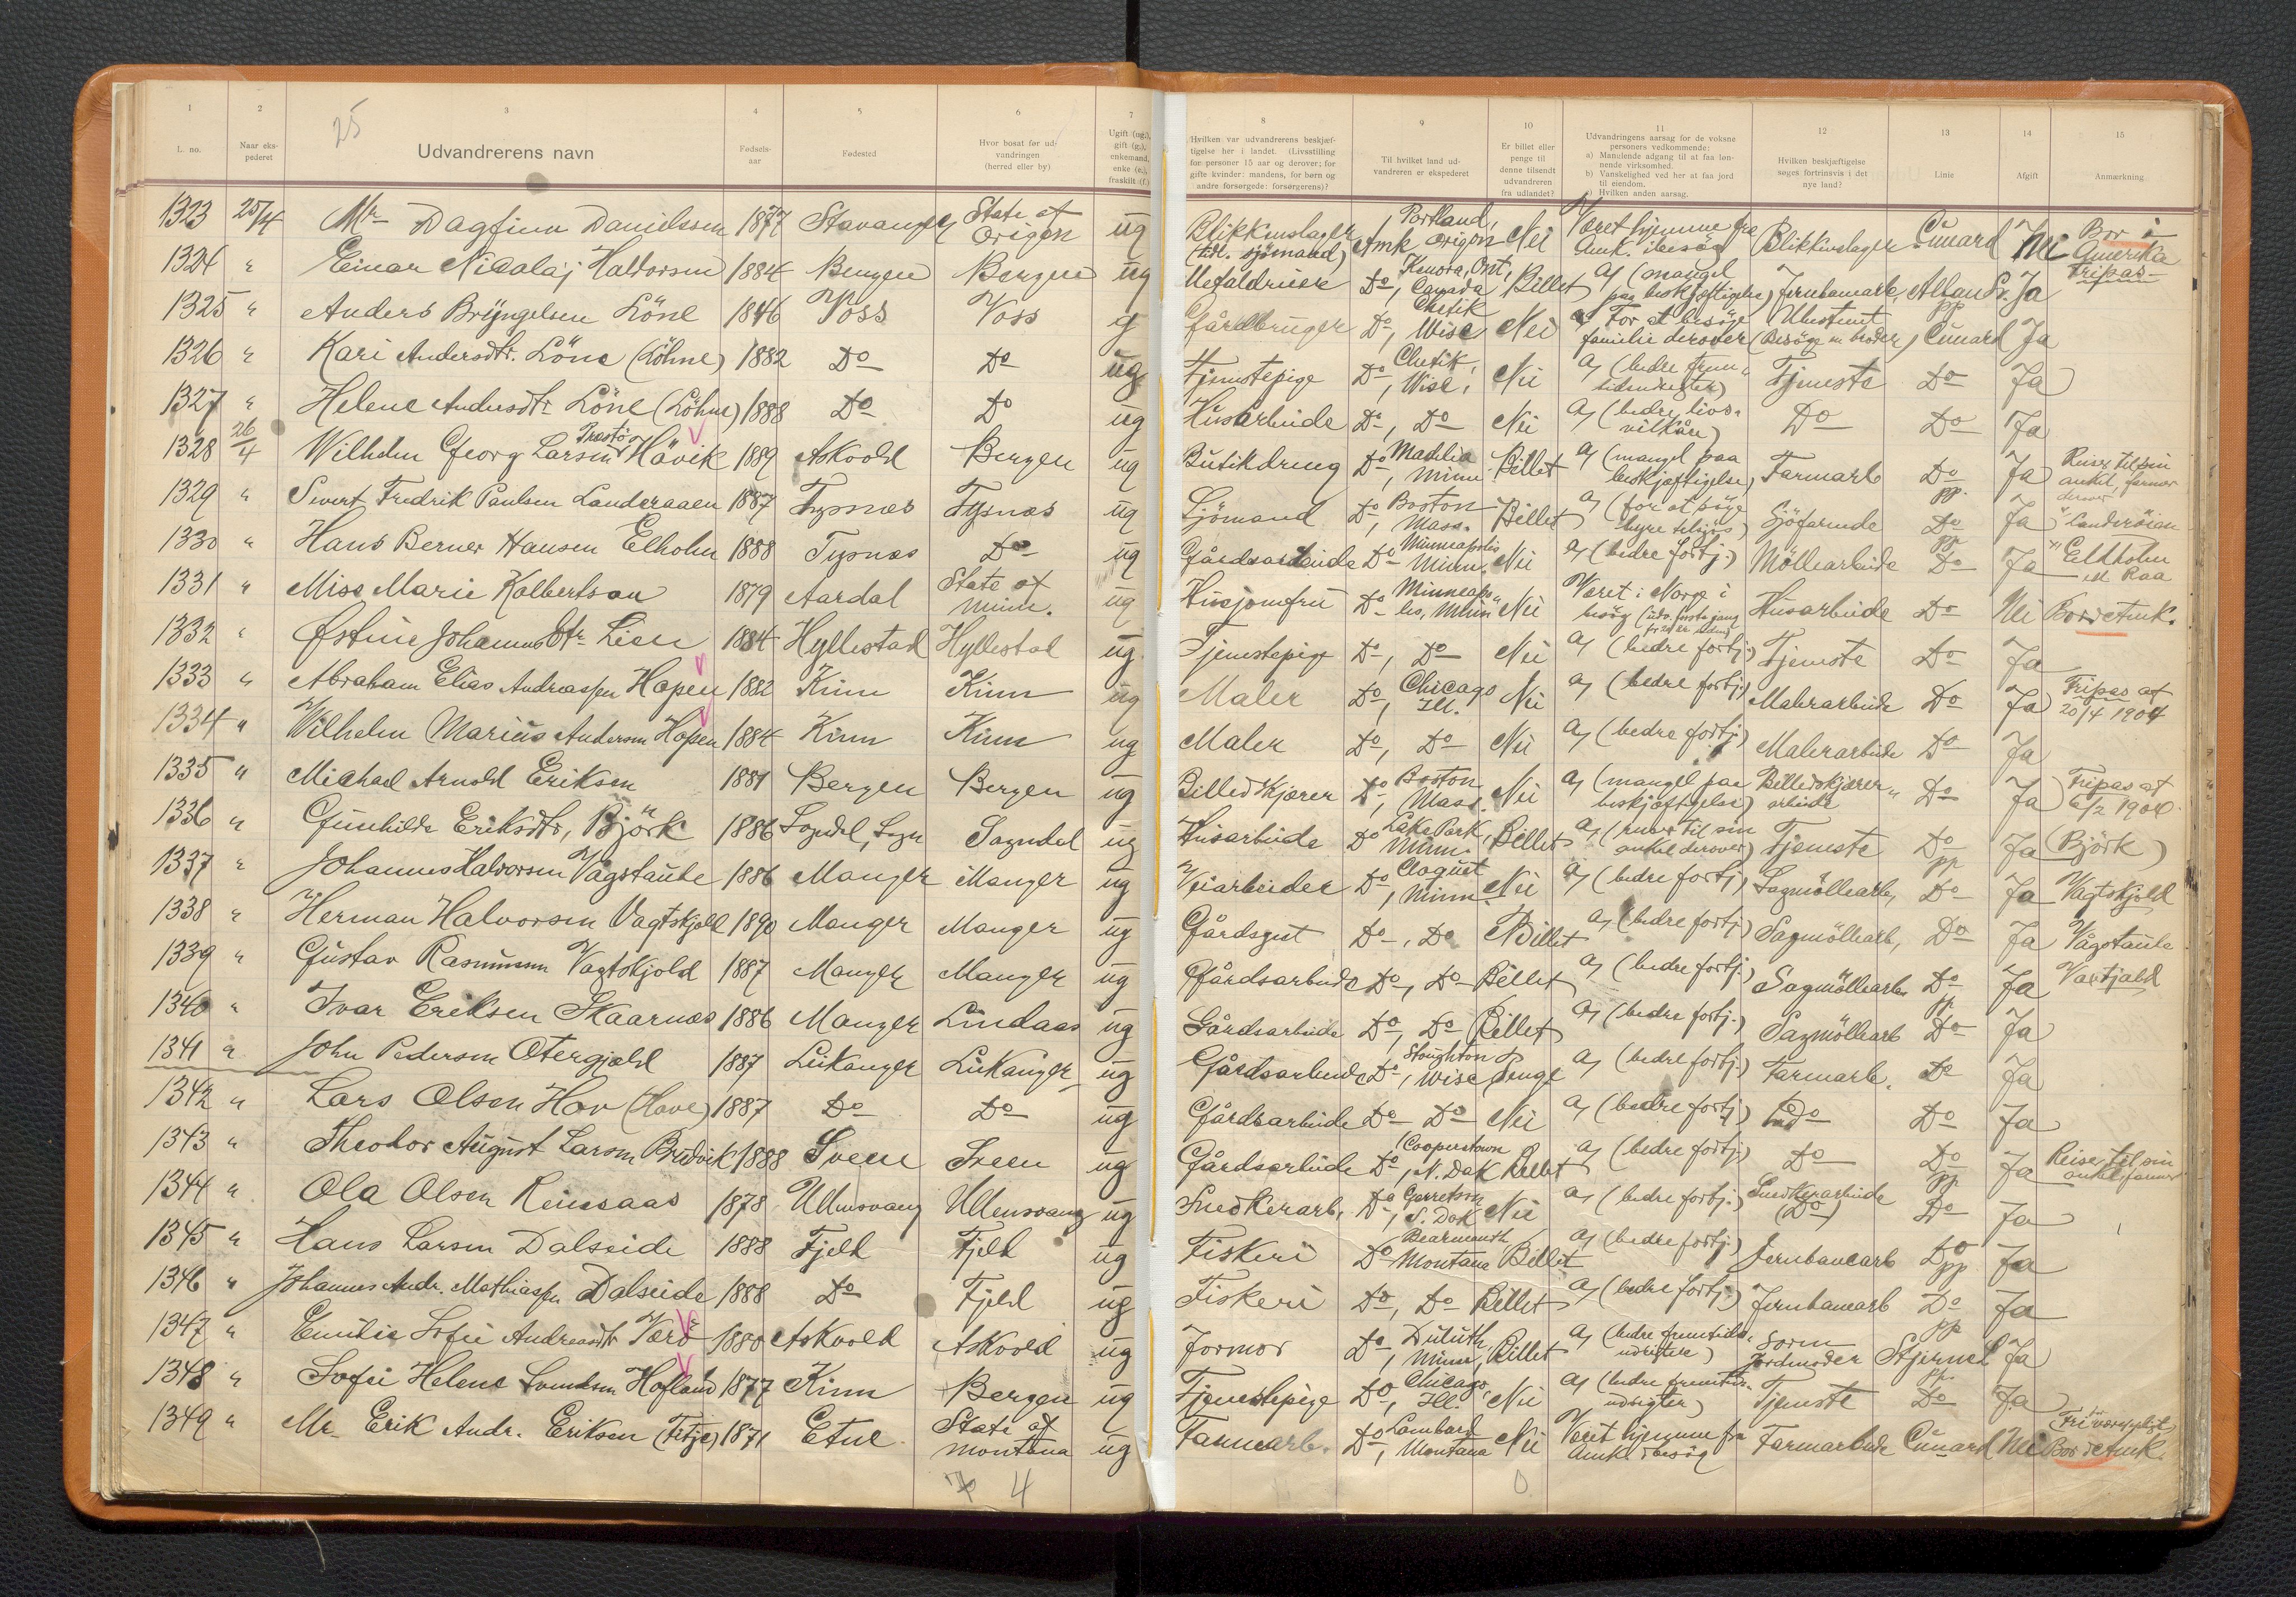 25
1 2 3 4 5 6 7 8 9 10 11 12 13 14 15
L. no.
Naar ekspederet
Udvandrerens navn
Fødselsaar
Fødested
Hvor bosat før udvandringen (herred eller by)
Ugift (ug.), gift (g.), enkemand, enke (e.), fraskilt (f.)
Hvilken var udvandrerens beskjæftigelse her i landet. (Livsstilling for personer 15 aar og derover; for gifte kvinder: mandens, for børn og andre forsørgede: forsørgerens)?
Til hvilket land udvandreren er ekspederet
Er billet eller penge til denne tilsendt udvandreren fra udlandet?
Udvandringens aarsag for de voksne personers vedkommende:
a) Manglende adgang til at faa lønnende virksomhed.
b) Vanskelighed ved her at faa jord til eiendom.
c) Hvilken anden aarsag.
Hvilken beskjæftigelse søges fortrinsvis i det nye land?
Linie
Afgift
Anmærkning
1323 25/4 Mr Dagfinn Danielssen 1877 Stavanger State of Origon ug Blikkenslager (tidl. sjömand) Amk Portland, Origon Nei Været hjemme fra Amk. i besög Blikkenslager Cunard Nei Bor i Amerika
1324 " Einar Nicolaj Halvorsen 1884 Bergen Bergen ug Metaldreier Do, Kenora, Ont, Canada Billet a) (mangel paa beskjæftigelse) Jernbanearb, Allan L. pp Ja Fripas
1325 " Anders Bryngelsen Löne 1846 Voss Voss g Gårdbruger Do, Chetik Wisc Nei c) For at besöge familie derover Ubestemt (Besöge m broder) Cunard Ja
1326 " Kari Andersdtr. Löne (Löhne) 1882 Do Do ug Tjenestepige Do, Chetik, Wisc. Nei a) (bedre fremtidsudsigter) Tjeneste Do Ja
1327 " Helene Andersdtr Löne (Löhne) 1888 Do Do ug Husarbeide Do, Do Nei a) (bedre livsvilkår) Do Do Ja
1328 26/4 Wilhelm Georg Larsen Prestö Hävik 1889 Askvold Bergen ug Butikdreng Do, Madelia Minn Billet a) (mangel paa beskjæftigelse) Farmarb Do pp. Ja Reiser til sin onkel, farmer derover
1329 " Sivert Fredrik Paulsen Landeraaen 1887 Tysnæs Tysnæs ug Sjömand Do, Boston Mass. Billet a) (for at söge hyre tilsjös) Sjöfarende Do pp Ja Landeröian
1330 " Hans Berner Hansen Elholm 1888 Tysnæs Do ug Gårdsarbeide Do Minneapolis Minn. Nei a) (bedre fortj.) Möllearbeide Do Ja Eldholm
1331 " Miss Marie Kolbertson 1879 Aardal State of Minn. ug Husjomfru Do Minneapolis, Minn Nei Været i Norge i besög Husarbeide Do Nei Bor i Amk.
1332 " Østine Johannesdtr Lien 1884 Hyllestad Hyllestad ug. Tjenestepige Do, Do Nei a) (bedre fortj.) Tjeneste Do Ja
1333 " Abraham Elias Andreassen Hopen 1882 Kinn Kinn ug Maler Do, Chicago Ill. Nei a) (bedre fortj.) Malerarbeide Do Ja Fripas af 20/4 1904
1334 " Wilhelm Marius Andersen Hopen 1884 Kinn Kinn ug Maler Do, Do Nei a) (bedre fortj) Malerarbeide Do Ja
1335 " Michael Arnold Eriksen 1881 Bergen Bergen ug Billedskjærer Do, Boston Mass. Nei a) (mangel paa beskjæftigelse) Billedskjærerarbeide Do Ja Fripas af 6/2 1906
1336 " Gunhilde Eriksdtr, Björk 1886 Sogndal, Sogn Sogndal ug Husarbeide Do Lake Park, Minn. Billet a) (reiser til sin onkel derover) Tjeneste Do pp Ja (Björk)
1337 " Johannes Halvorsen Vågstaule 1886 Manger Manger ug Veiarbeider Do, Cloquet Minn. Nei a) (bedre fortj.) Sagmöllearb, Do Ja Vagtskjold
1338 " Herman Halvorsen Vagtskjold 1890 Manger Manger ug Gårdsgut Do, Do Billet a) (bedre fortj.) Sagmöllearb, Do Ja Vågstaule
1339 " Gustav Rasmussen Vagtskjold 1887 Manger Manger ug Gårdsarbeide Do, Do Billet a) (bedre fortj.) Sagmöllearb Do pp Ja
1340 " Ivar Eriksen Skaarnæs 1886 Manger Lindaas ug Gårdsarbeide Do, Do Billet a) (bedre fortj.) Sagmöllearb Do Ja
1341 " John Pedersen Otergjæld 1887 Leikanger Leikanger ug Gårdsarbeide Do, Stoughton Wisc Penge a) (bedre fortj.) Farmarb. Do Ja
1342 " Lars Olsen Hov (Hove) 1887 Do Do ug Gårdsarbeide Do Do Nei a) (bedre fortj) Do Do Ja
1343 " Theodor August Larsen Bredvik 1888 Sveen Sveen ug Gårdsarbeide Do, Cooperstown N. Dak Billet a) (bedre fortj) Do Do pp Ja Reiser til sin onkel, farmer
1344 " Ola Olsen Reinsaas 1878 Ullensvang Ullensvang ug Snedkerarb, Do, Garretson S. Dak Nei a) (bedre fortj.) Snedkerarbeide (Do) Do Ja
1345 " Hans Larsen Dalseide 1888 Fjeld Fjeld ug Fiskeri Do Bearmouth Montana Billet a) (bedre fortj) Jernbanearb Do pp Ja
1346 " Johannes Andr. Mathiassen Dalseide 1888 Do Fjeld ug Fiskeri Do, Do Billet a) (bedre fortj.) Jernbanearb Do pp Ja
1347 " Emilie Sofie Andreasdtr Værö 1880 Askvold Askvold ug Jormor Do, Duluth, Minn, Billet a) (bedre fremtidsudsigter) Som Jordmoder Stjernel pp. Ja
1348 " Sofie Helene Svendsen Hofland 1877 Kinn Bergen ug Tjenestepige Do, Chicago, Ill. Nei a) (bedre fremtidsudsigter) Tjeneste Do Ja
1349 " Mr Erik Andr. Eriksen (Fitje) 1871 Etne State of Montana ug Farmearb. Do, Lombard Montana Nei Været hjemme fra Amk. i besög Farmarbeide Cunard Nei Bor i Amk.
4 0